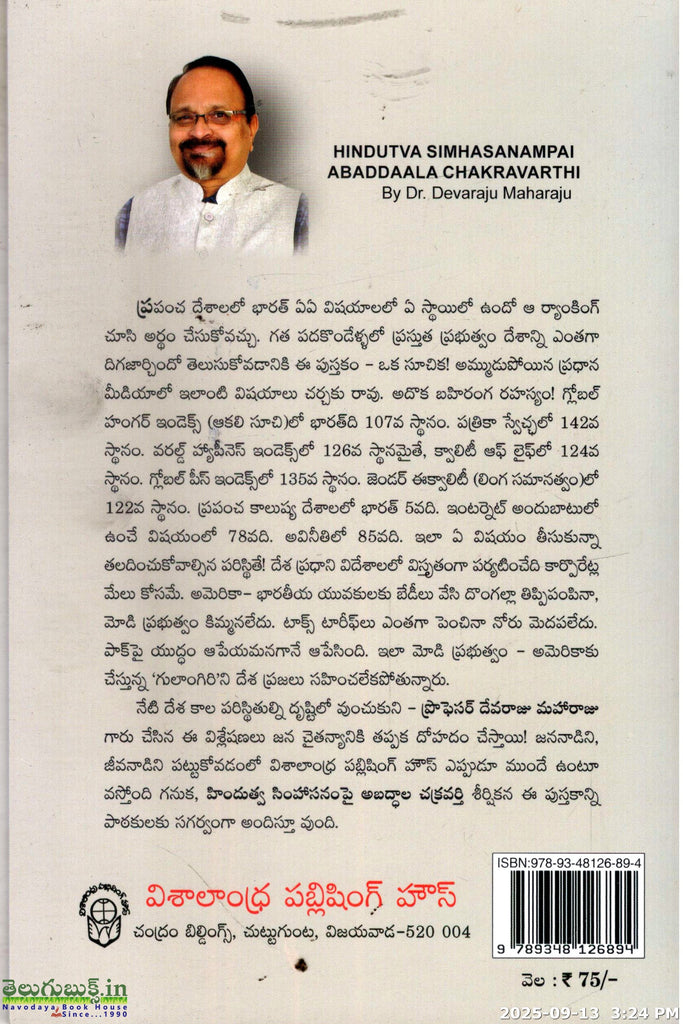 HINDUTVA SIMHASANAMPAI
ABADDAALA CHAKRAVARTHI
By Dr. Devaraju Maharaju
ప్రపంచ దేశాలలో భారత్ ఏఏ విషయాలలో ఏ స్థాయిలో ఉందో ఆ ర్యాంకింగ్
చూసి అర్థం చేసుకోవచ్చు. గత పదకొండేళ్ళలో ప్రస్తుత ప్రభుత్వం దేశాన్ని ఎంతగా
దిగజార్చిందో తెలుసుకోవడానికి ఈ పుస్తకం - ఒక సూచిక! అమ్ముడుపోయిన ప్రధాన
మీడియాలో ఇలాంటి విషయాలు చర్చకు రావు. అదొక బహిరంగ రహస్యం! గ్లోబల్
హంగర్ ఇండెక్స్ (ఆకలి సూచి)లో భారత్‌ది 107వ స్థానం. పత్రికా స్వేచ్ఛలో 142వ
స్థానం. వరల్డ్ హ్యాపీనెస్ ఇండెక్స్‌లో 126వ స్థానమైతే, క్వాలిటీ ఆఫ్ లైఫ్‌లో 124వ
స్థానం. గ్లోబల్ పీస్ ఇండెక్స్‌లో 135వ స్థానం. జెండర్ ఈక్వాలిటీ (లింగ సమానత్వం)లో
122వ స్థానం. ప్రపంచ కాలుష్య దేశాలలో భారత్ 5వది. ఇంటర్నెట్ అందుబాటులో
ఉంచే విషయంలో 78వది. అవినీతిలో 85వది. ఇలా ఏ విషయం తీసుకున్నా
తలదించుకోవాల్సిన పరిస్థితే! దేశ ప్రధాని విదేశాలలో విస్తృతంగా పర్యటించేది కార్పొరేట్ల
మేలు కోసమే. అమెరికా- భారతీయ యువకులకు బేడీలు వేసి దొంగల్లా తిప్పిపంపినా,
మోడి ప్రభుత్వం కిమ్మనలేదు. టాక్స్ టారీఫ్‌లు ఎంతగా పెంచినా నోరు మెదపలేదు.
పాక్‌పై యుద్ధం ఆపేయమనగానే ఆపేసింది. ఇలా మోడి ప్రభుత్వం - అమెరికాకు
చేస్తున్న 'గులాంగిరి'ని దేశ ప్రజలు సహించలేకపోతున్నారు.
నేటి దేశ కాల పరిస్థితుల్ని దృష్టిలో వుంచుకుని - ప్రొఫెసర్ దేవరాజు మహారాజు
గారు చేసిన ఈ విశ్లేషణలు జన చైతన్యానికి తప్పక దోహదం చేస్తాయి! జననాడిని,
జీవనాడిని పట్టుకోవడంలో విశాలాంధ్ర పబ్లిషింగ్ హౌస్ ఎప్పుడూ ముందే ఉంటూ
వస్తోంది గనుక, హిందుత్వ సింహాసనంపై అబద్ధాల చక్రవర్తి శీర్షికన ఈ పుస్తకాన్ని
పాఠకులకు సగర్వంగా అందిస్తూ వుంది.
ISBN:978-93-48126-89-4
9 789348 126894
విశాలాంధ్ర పబ్లిషింగ్ హౌస్
చంద్రం బిల్డింగ్స్, చుట్టుగుంట, విజయవాడ-520 004
వెల : ₹ 75/-
తెలుగుబుక్స్.in
Navodaya Book House
Since...1990
2025-09-13 3:24 PM